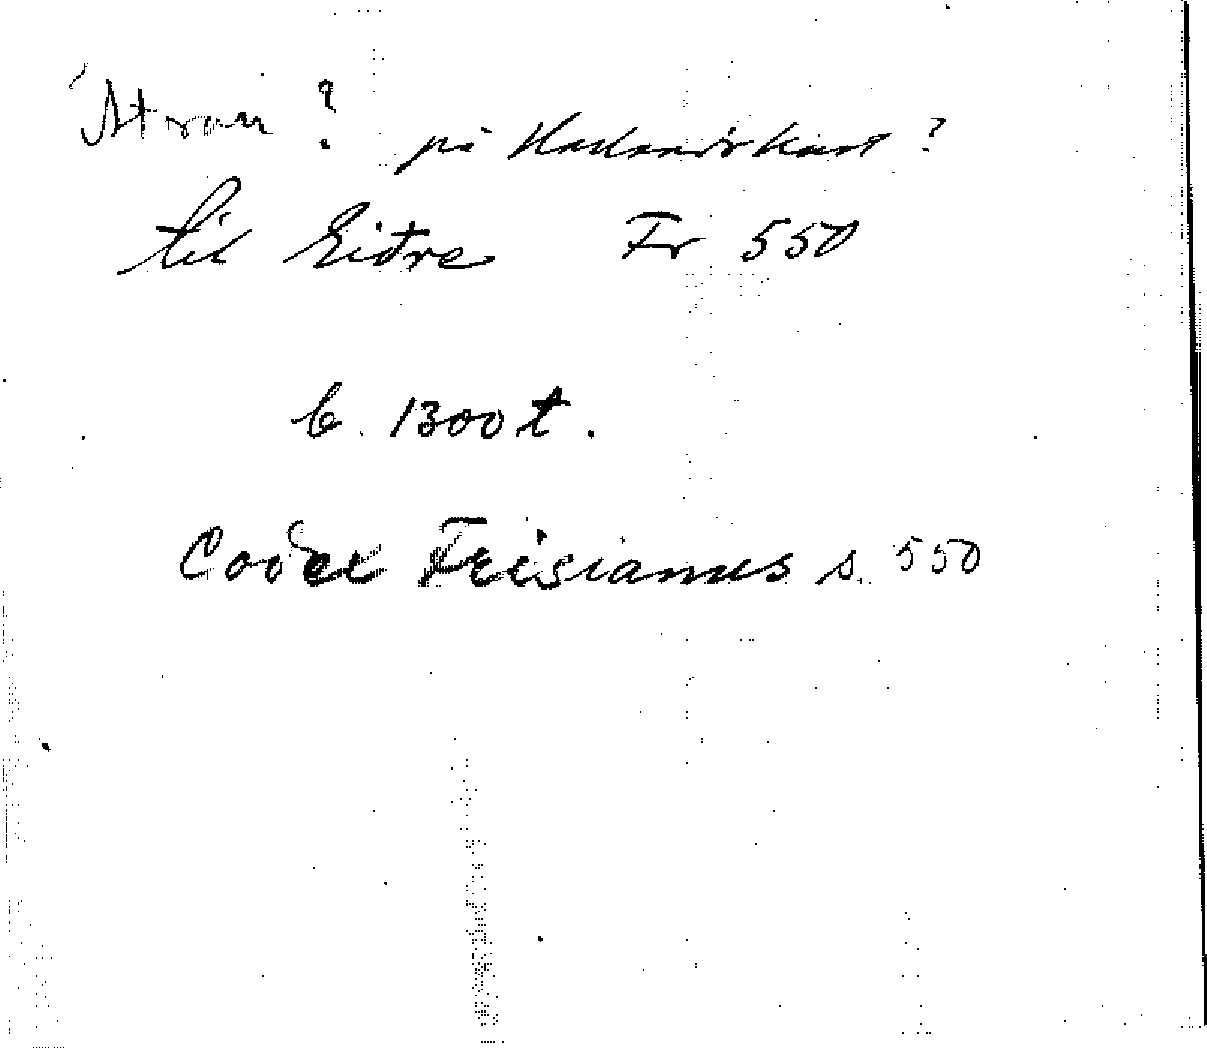 Atran ? på Hallandskust ?
til Eiðre Fr 550
b. 1300 t.
Codex Frisianus s. 550